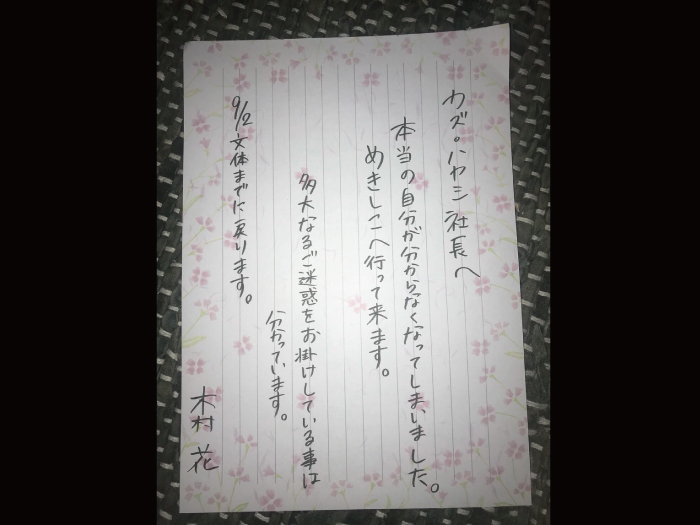 カズ・ハヤシ社長へ
本当の自分が分からなくなってしまいました。
めきしこへ行って来ます。
多大なるご迷惑をお掛けしている事は
分かっています。
9/2文体までに戻ります。
木村花